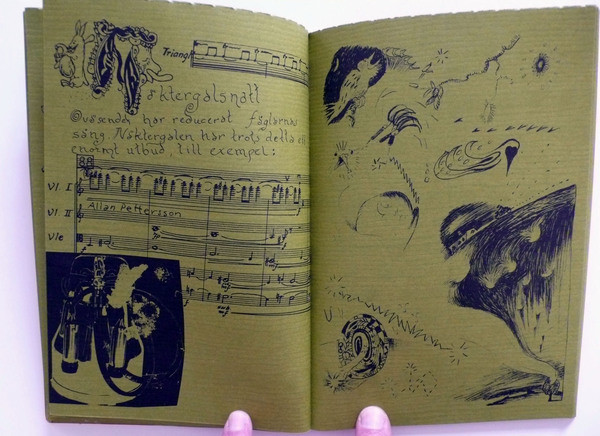 Triangl
Näktergalsnatt
Oväsendet har reducerat fåglarnas
sång. Näktergalen har trots detta ett
enormt utbud, till exempel:
88
Vl. I
Allan Pettersson
Vl. II
Vle